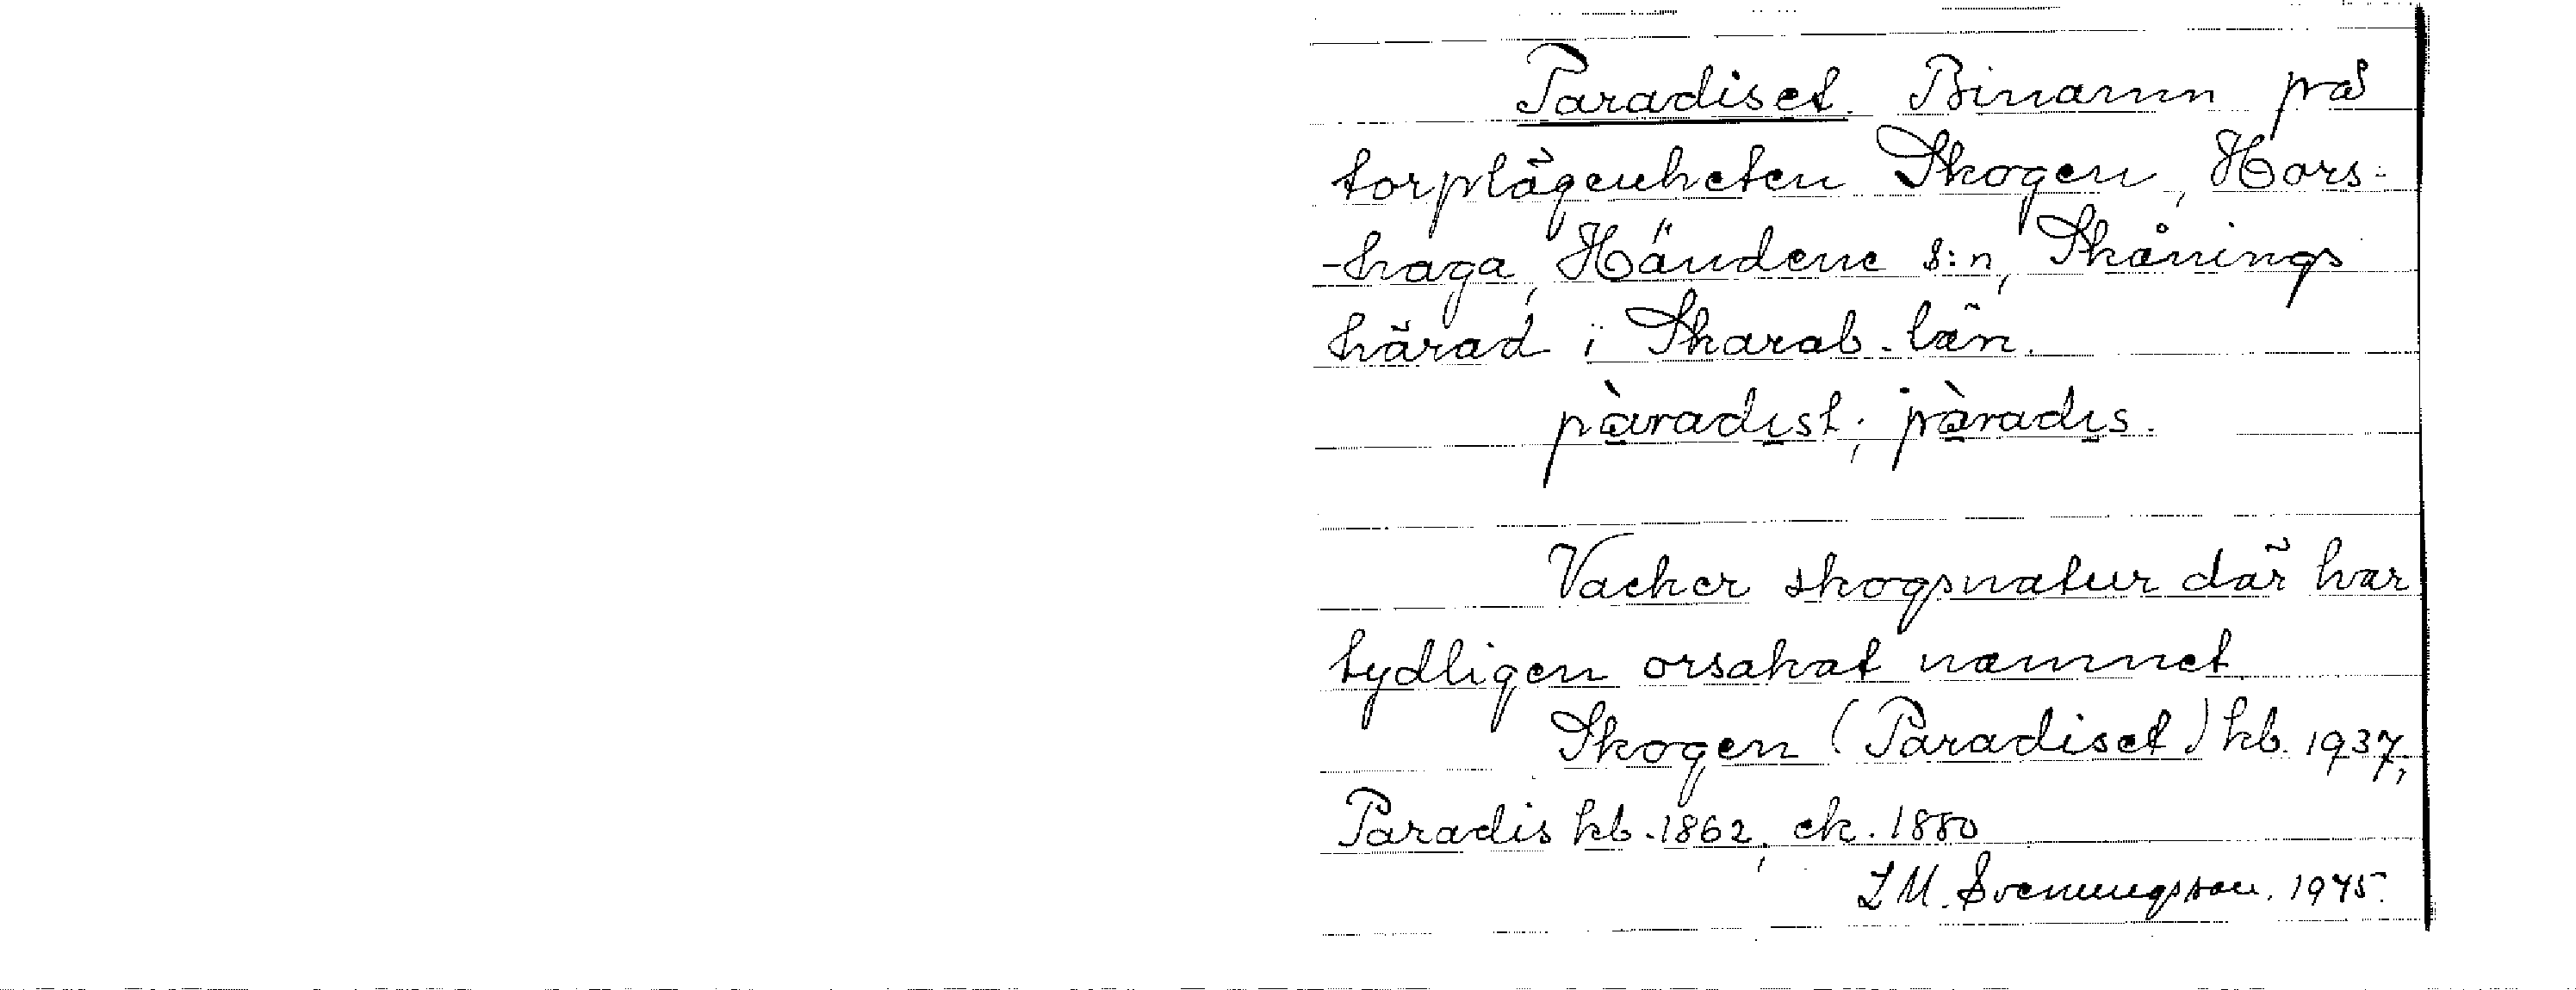 Paradiset. Binamn på
torplägenheten Skogen, Hors-
-haga, Händene s:n, Skånings
härad i Skarab. län.
pàradist; pàradis.
Vacker skogsnatur där har
tydligen orsakat namnet.
Skogen (Paradiset) kb. 1937,
Paradis kb. 1862, ek. 1880
L M. Svenungsson. 1945.